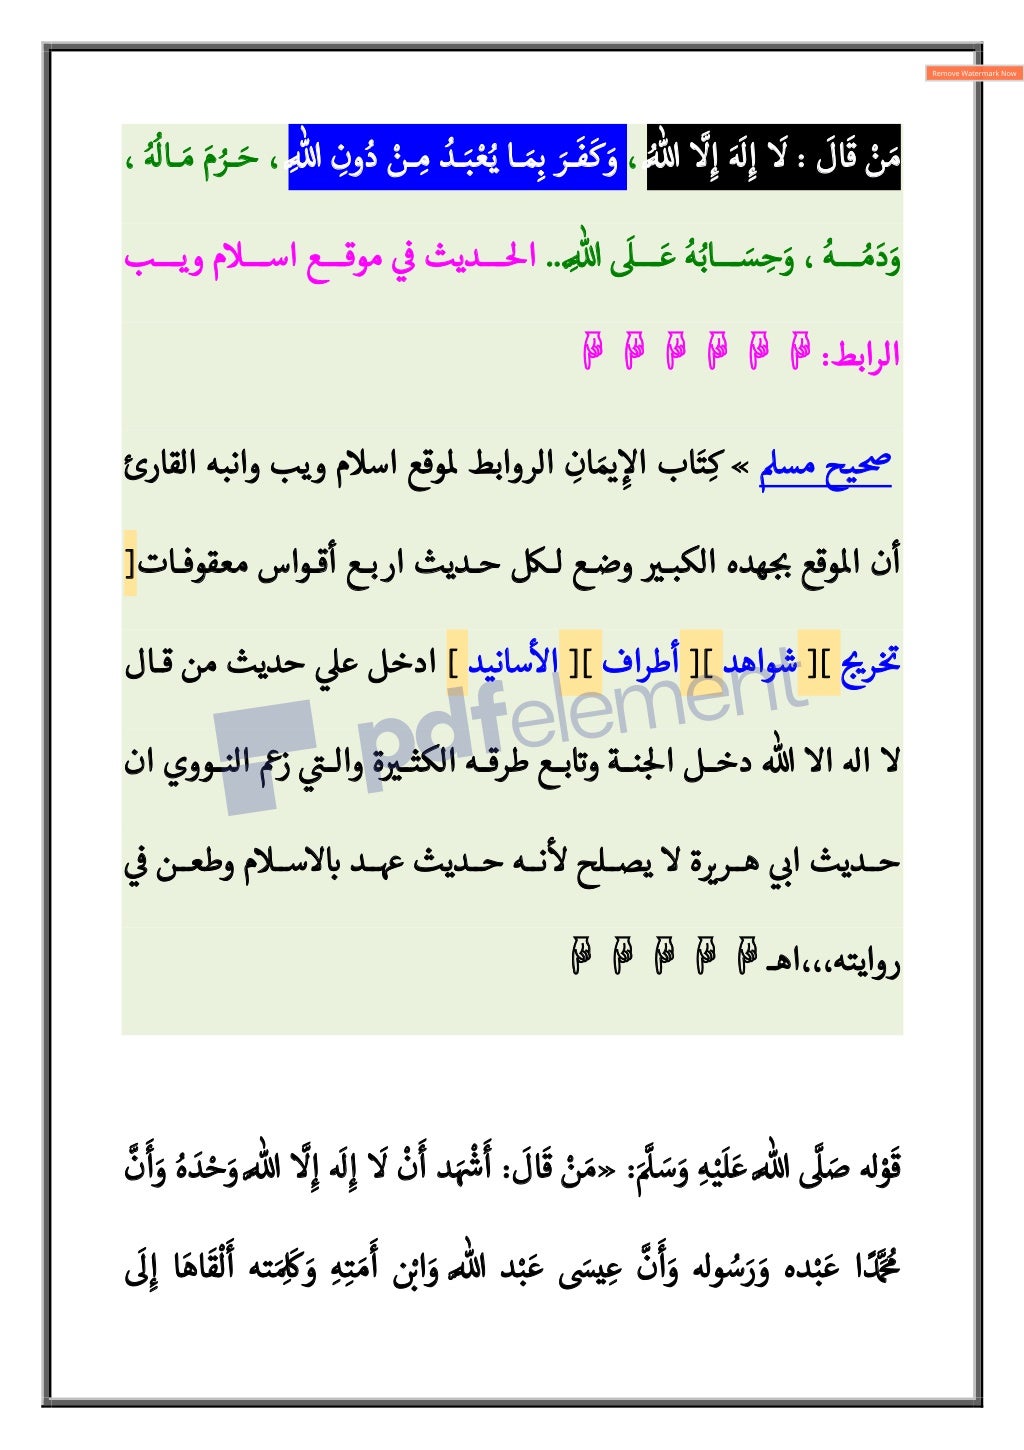 Remove Watermark Now
مَنْ قَالَ : لَا إِلَهَ إِلَّا اللهُ ، وَكَفَرَ بِمَا يُعْبَدُ مِنْ دُونِ اللهِ ، حَرُمَ مَالُهُ ،
وَدَمُهُ ، وَحِسَابُهُ عَلَى اللهِ.. الحديث في موقع اسلام ويب
الرابط:
صحيح مسلم » كِتَاب الإِيمَانِ الروابط لموقع اسلام ويب وانبه القارئ
أن الموقع بجهده الكبير وضع لكل حديث اربع أقواس معقوفات[
تخريج ][ شواهد ][ أطراف ][ الأسانيد ] ادخل علي حديث من قال
لا اله الا الله دخل الجنة وتابع طرقه الكثيرة والتي زعم النووي ان
حديث ابي هريرة لا يصلح لأنه حديث عهد بالاسلام وطعن في
روايته،،،اهـ
pdfelement
قَوْله صَلَّى اللهِ عَلَيْهِ وَسَلَّمَ: «مَنْ قَالَ: أَشْهَد أَنْ لَا إِلَه إِلَّا اللهِ وَحْدَهُ وَأَنَّ
مُحَمَّدًا عَبْده وَرَسُوله وَأَنَّ عِيسَى عَبْد اللهِ وَابْن أَمَتِهِ وَكَلِمَته أَلْقَاهَا إِلَى